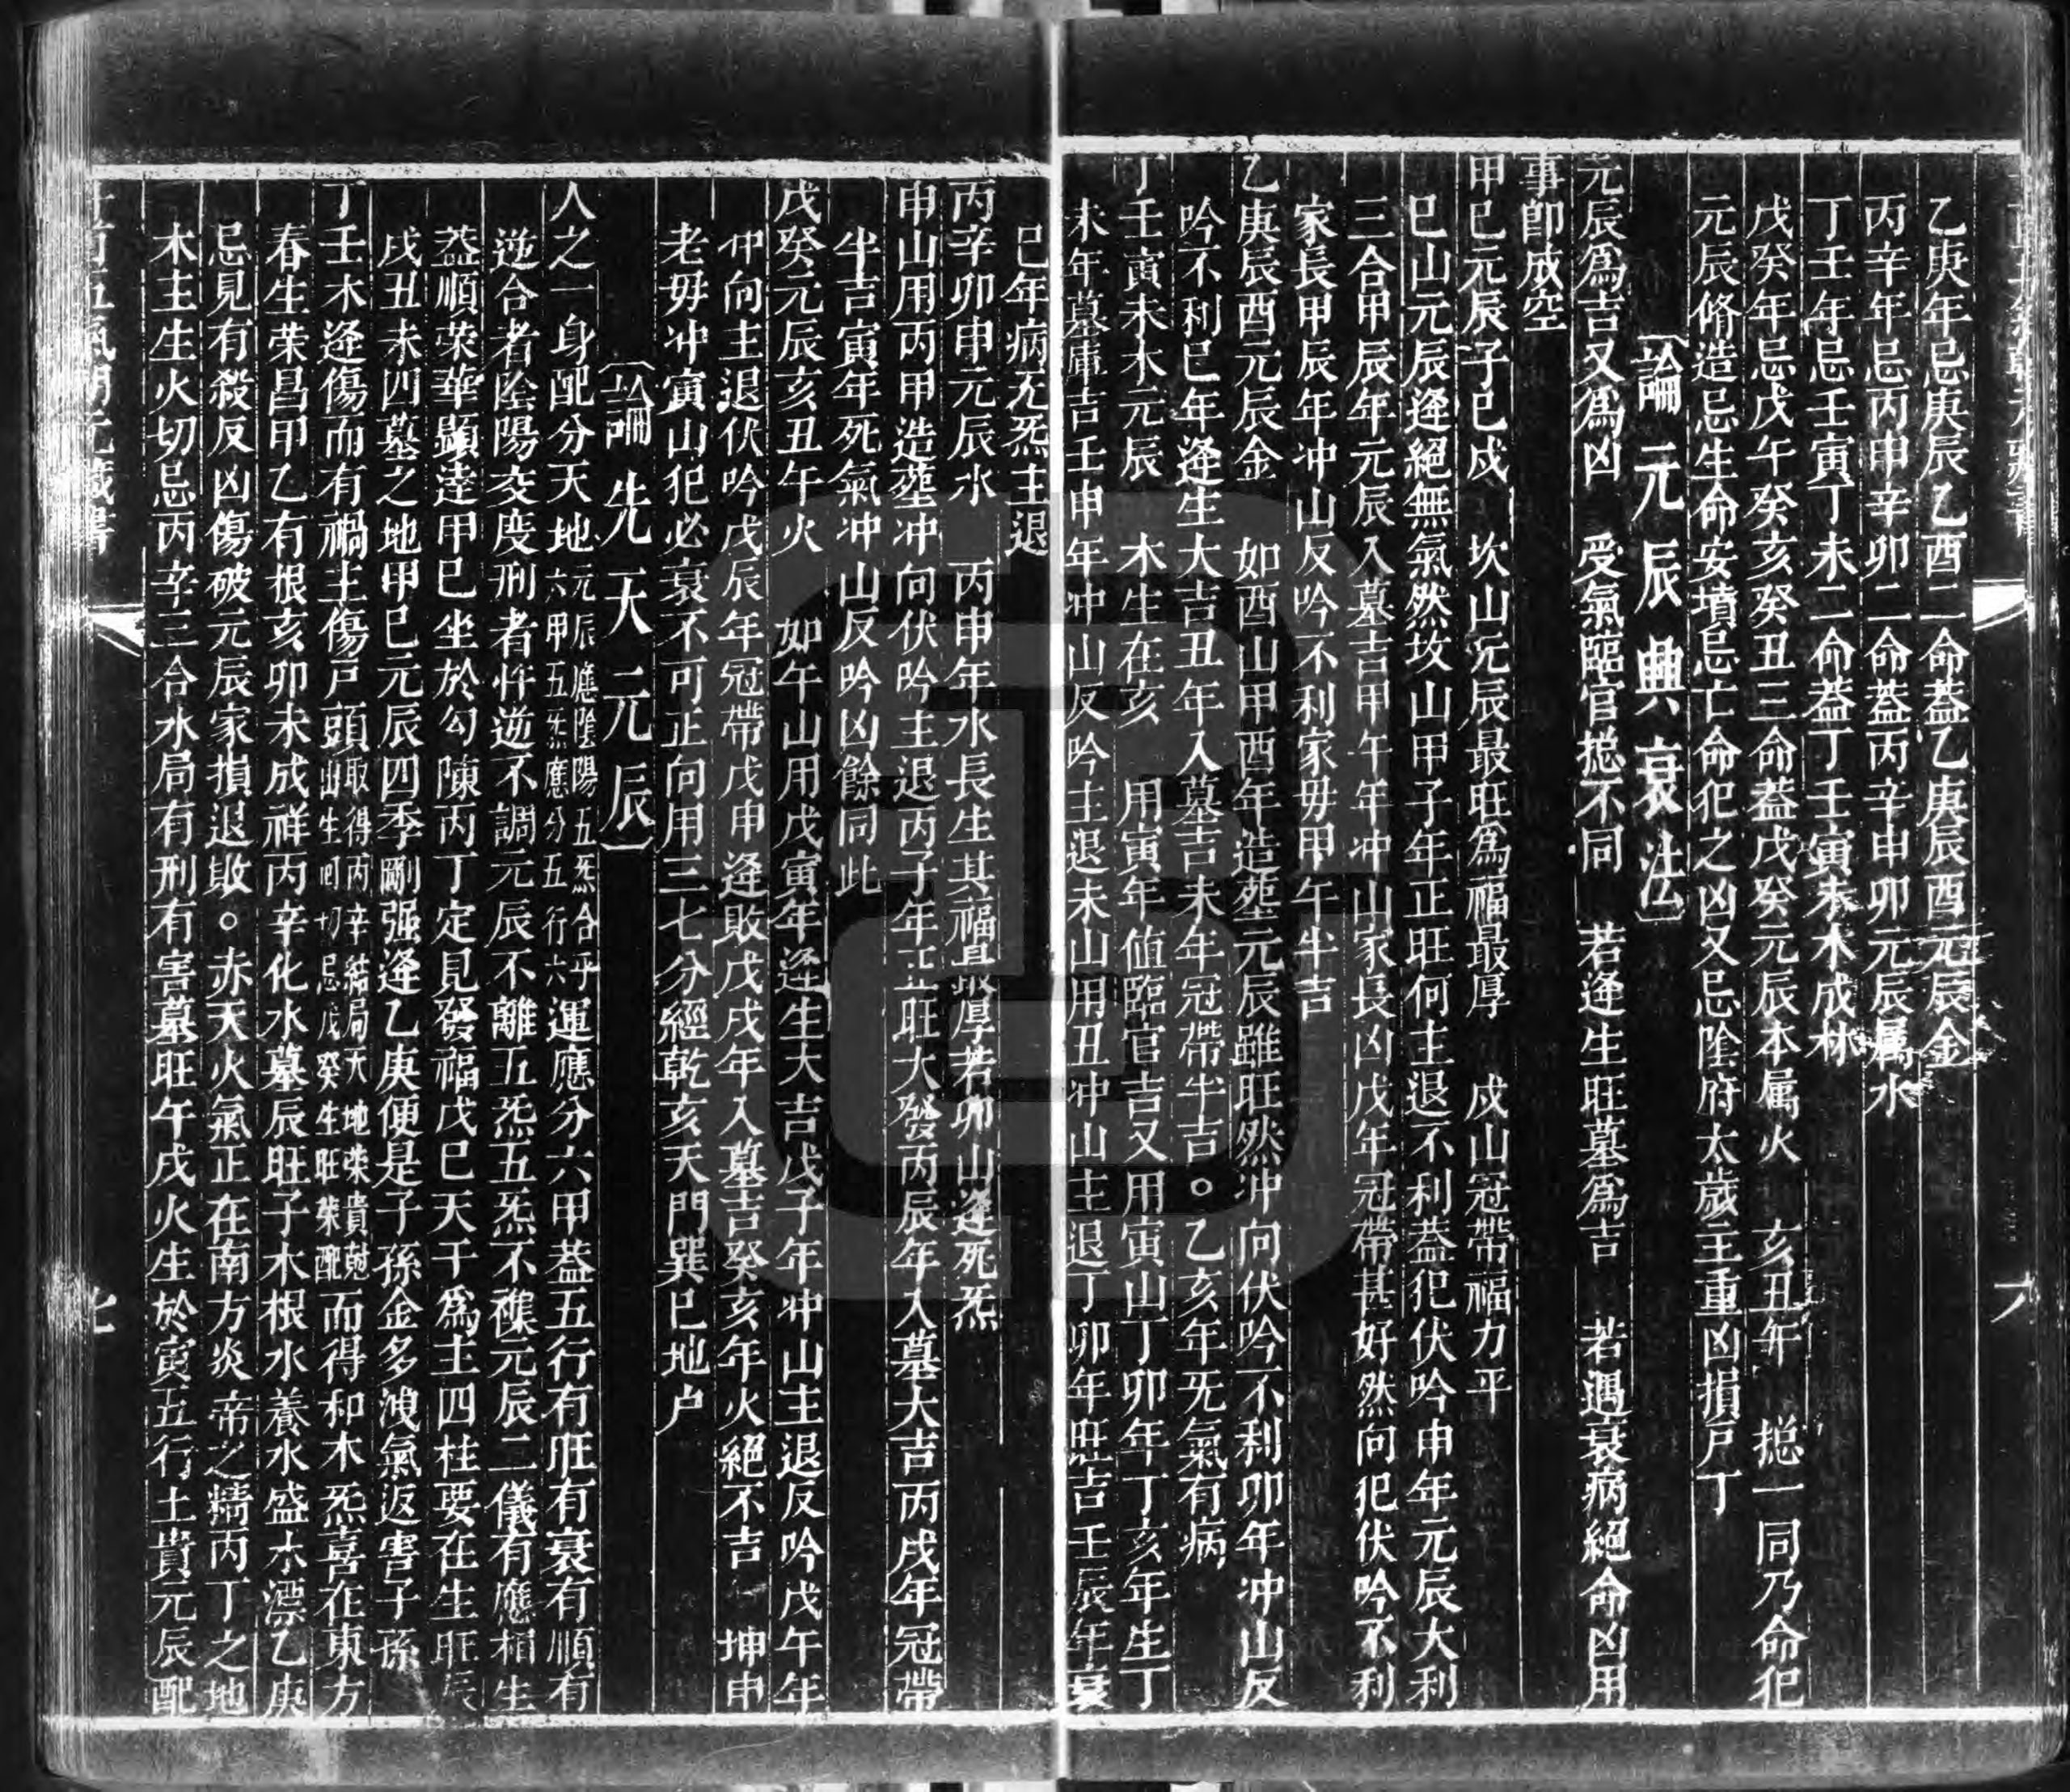 乙庚年忌庚辰乙酉二命葢乙庚辰酉元辰金
丙辛年忌丙申辛卯二命葢丙辛申卯元辰属水
丁壬年忌壬寅丁未二命葢丁壬寅未木成林
戊癸年忌戊午癸亥癸丑三命葢戊癸元辰本属火 亥丑年 揔一同乃命犯
元辰脩造忌生命安墳忌亡命犯之凶又忌隂府太歲主重凶損尸丁
〔論元辰興衰法〕
元辰爲吉又爲凶 受氣臨官揔不同 若逢生旺墓爲吉 若遇衰病絕命凶用
事卽成空
甲巳元辰子巳戍 坎山元辰最旺爲福最厚 戍山冠帶福力平
巳山元辰逢絕無氣然坎山甲子年正旺何主退不利葢犯伏吟申年元辰大利
三合甲辰年元辰入墓吉甲午年冲山家長凶戊年冠帶甚好然向犯伏吟不利
家長甲辰年冲山反吟不利家毋甲午半吉
乙庚辰酉元辰金 如酉山甲酉年造塟元辰雖旺然冲向伏吟不利卯年冲山反
吟不利巳年逢生大吉丑年入墓吉未年冠帶半吉○乙亥年旡氣有病
丁壬寅未木元辰 木生在亥 用寅年値臨官吉又用寅山丁卯年丁亥年生丁
未年墓庫吉壬申年冲山反吟主退未山用丑冲山主退丁卯年旺吉壬辰年衰
巳年病旡炁主退
丙辛卯申元辰水 丙申年水長生其福最厚若卯山逢死炁
申山用丙甲造塟冲向伏吟主退丙子年正旺大發丙辰年入墓大吉丙戌年冠帶
半吉寅年死氣冲山反吟凶餘同此
戊癸元辰亥丑午火 如午山用戊寅年逢生大吉戊子年冲山主退反吟戊午年
冲向主退伏吟戊辰年冠帶戊申逢敗戊戌年入墓吉癸亥年火絕不吉 坤申
老毋冲寅山犯必衰不可正向用三七分經乾亥天門巽巳地户
〔論先天元辰〕
人之一身配分天地元辰應隂陽五炁合乎六甲五炁應分五行六運應分六甲葢五行有旺有衰有順有
逆合者隂陽交度刑者忤逆不調元辰不離五炁五炁不襍元辰二儀有應相生
葢順荣華顯逹甲巳坐於勾陳丙丁定見發福戊巳天干爲主四柱要在生旺辰
戌丑未四墓之地甲巳元辰四季剛强逢乙庚便是子孫金多洩氣返害子孫
丁壬木逢傷而有禍主傷戶頭取得丙辛結局大地荣貴尅出生囘切忌戊癸生旺荣配而得和木炁喜在東方
春生荣昌甲乙有根亥卯未成祥丙辛化水墓辰旺子木根水養水盛木漂乙庚
忌見有殺反凶傷破元辰家損退敗○赤天火氣正在南方炎帝之精丙丁之地
木主生火切忌丙辛三合水局有刑有害墓旺午戌火生於寅五行土貴元辰配